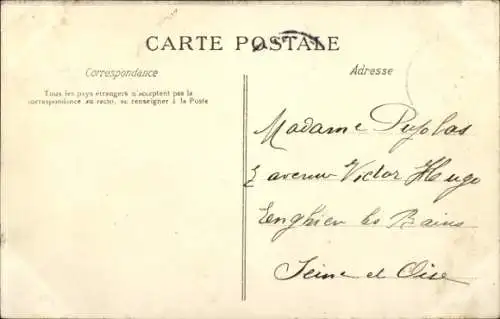 CARTE POSTALE
Correspondance
Tous les pays étrangers n'acceptent pas la
correspondance au recto, se renseigner à la Poste
Adresse
Madame Pujolas
2 avenue Victor Hugo
Enghien les Bains
Seine et Oise